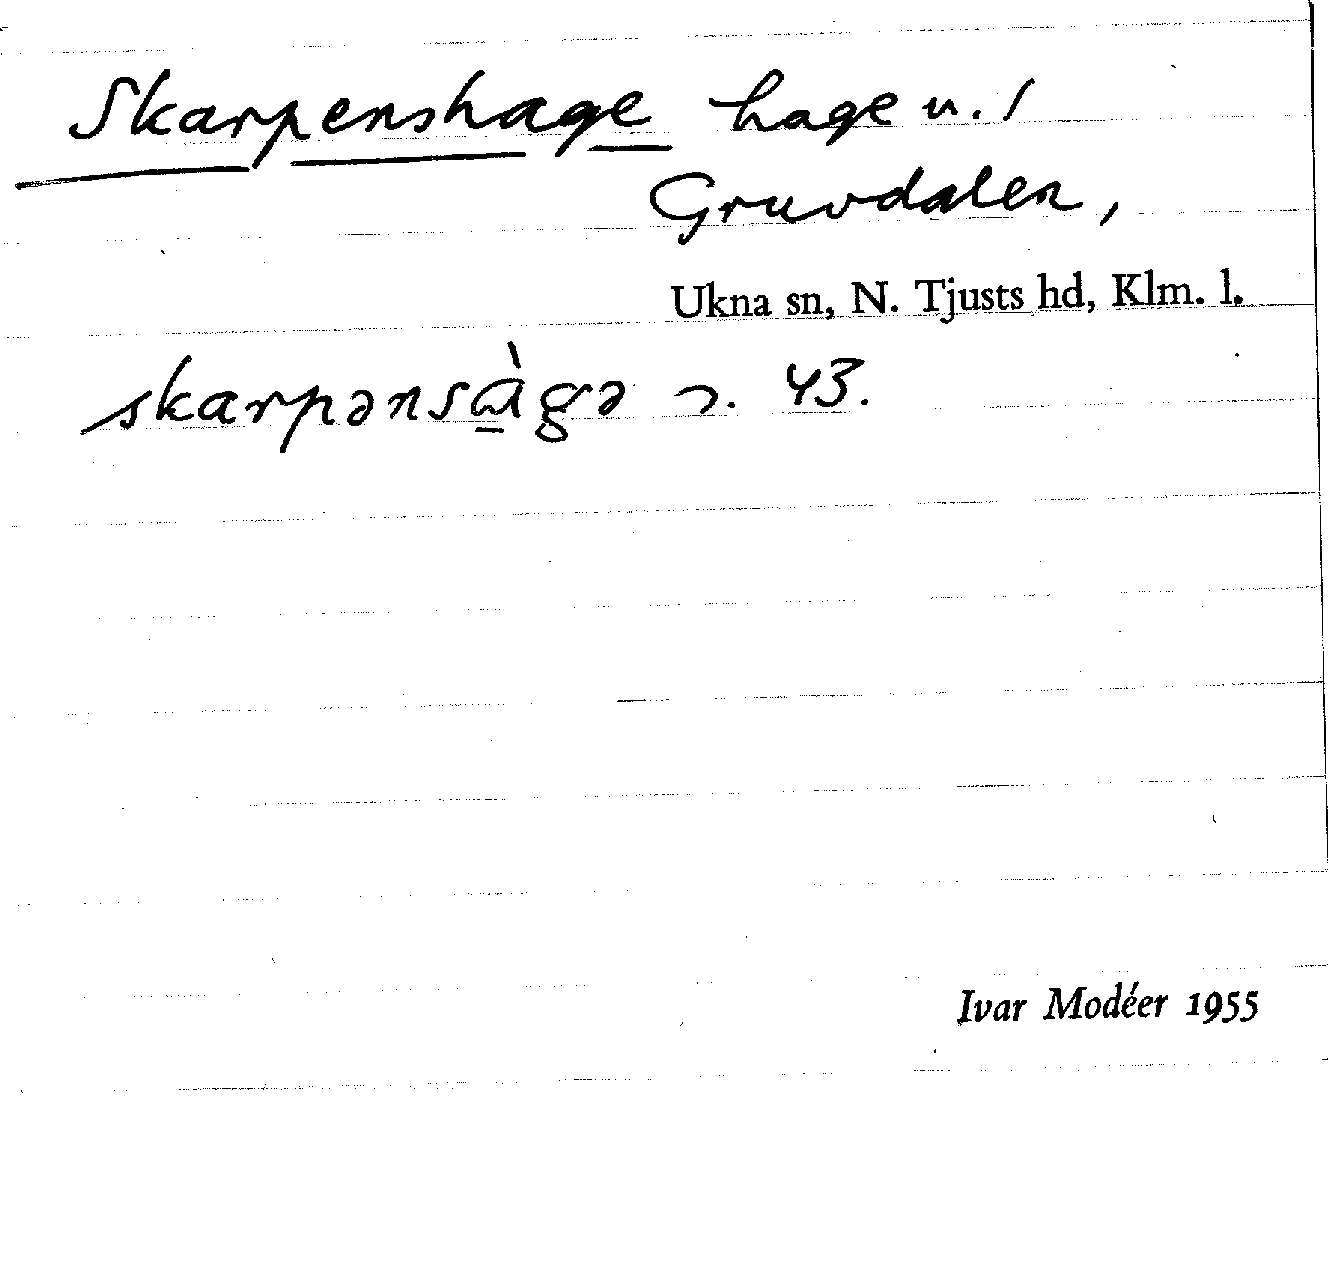 Skarpenshage hage u. /
Gruvdalen,
Ukna sn, N. Tjusts hd, Klm. l.
skarpənsàgə 43.
Ivar Modéer 1955